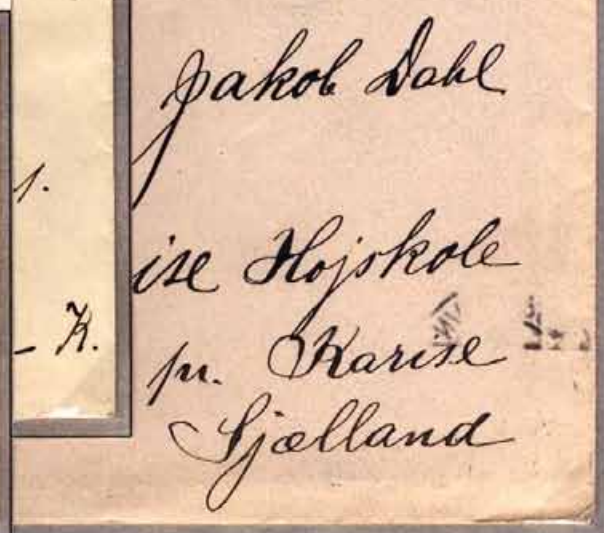 Jakob Dahl
ise Højskole
pr. Karise
Sjælland
1.
- K.